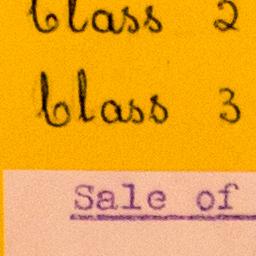 Class 2
Class 3
Sale of